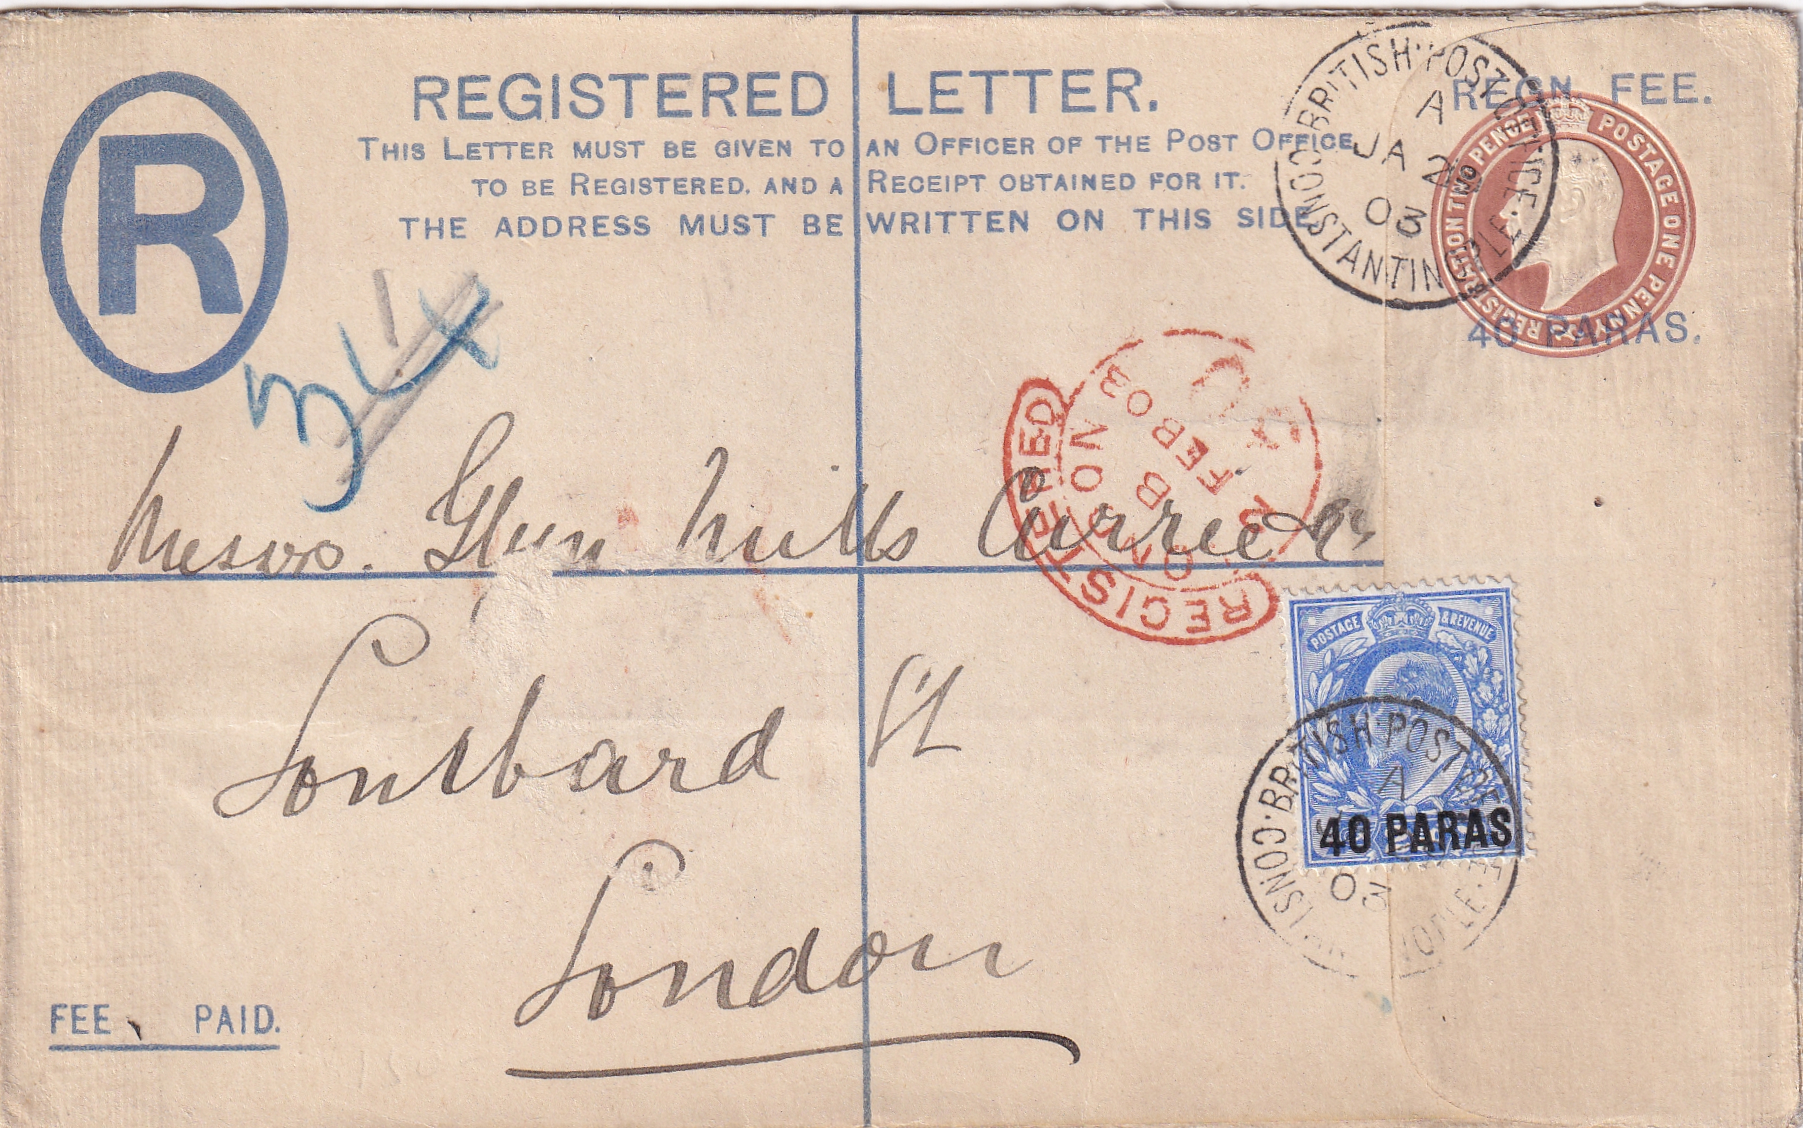 R
REGISTERED LETTER.
THIS LETTER MUST BE GIVEN TO AN OFFICER OF THE POST OFFICE
TO BE REGISTERED, AND A RECEIPT OBTAINED FOR IT.
THE ADDRESS MUST BE WRITTEN ON THIS SIDE.
REGN FEE.
REGISTRATION TWO PENCE POSTAGE ONE PENNY
40 PARAS.
BRITISH POST OFFICE
A
JA 2
03
CONSTANTINOPLE
REGISTERED
LONDON
FEB 03
Messrs. Glyn Mills Currie & Co
Lombard St
London
POSTAGE & REVENUE
40 PARAS
BRITISH POST OFFICE
A
03
CONSTANTINOPLE
FEE PAID.